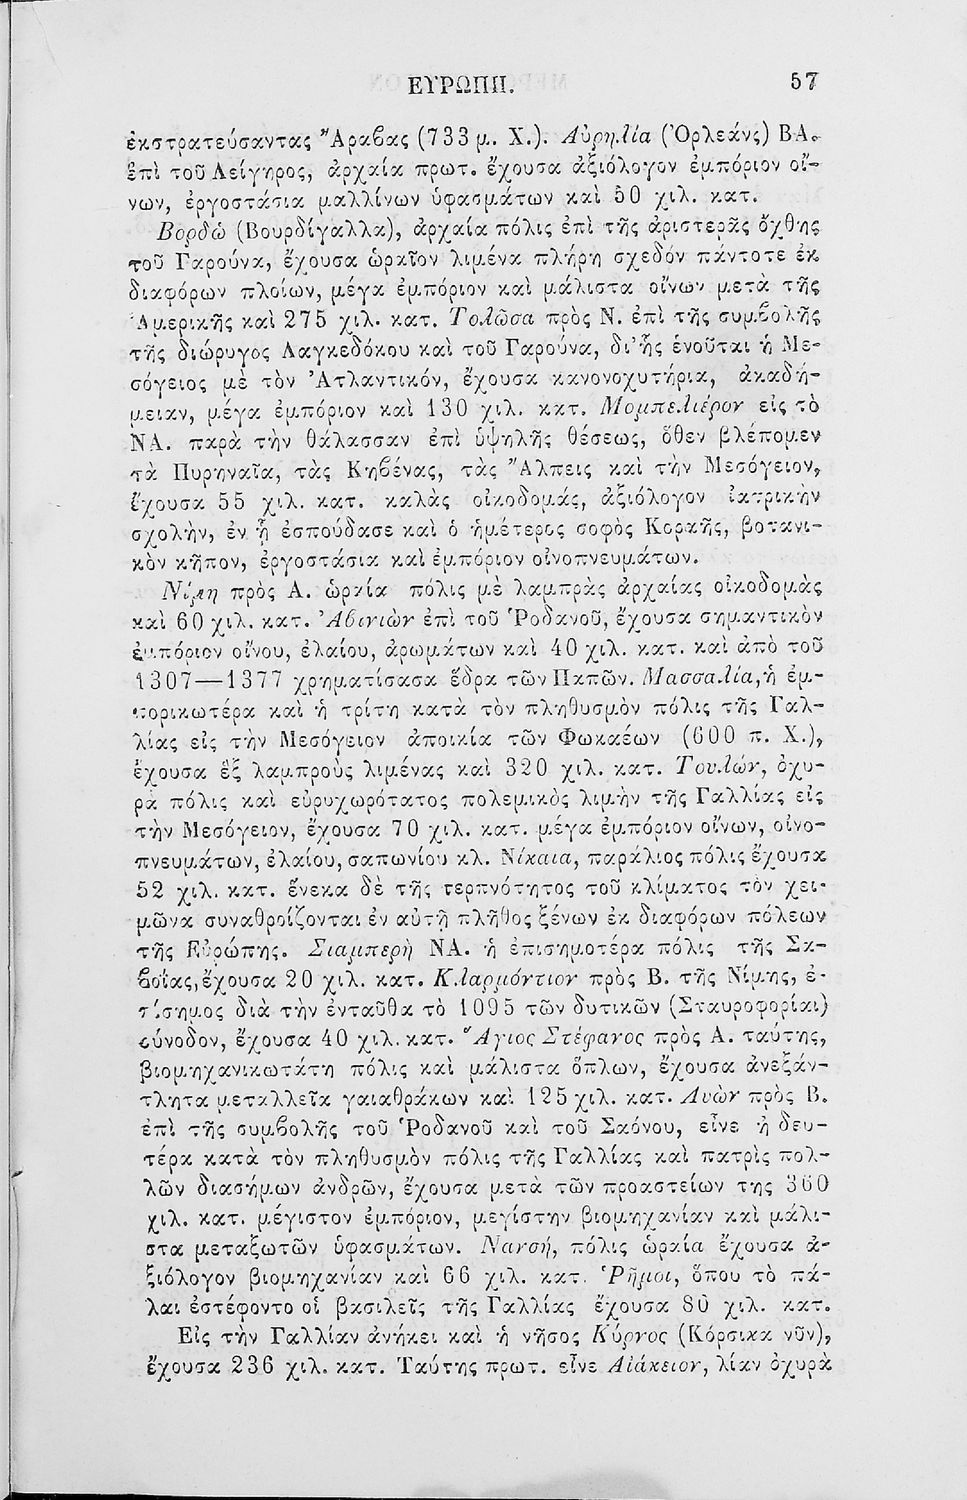 ΕΥΡΩΠΗ. 57
ἐκστρατεύσαντας Ἄραβας (733 μ. Χ.). Αὐρηλία (Ὀρλεάνς) ΒΑ.
ἐπὶ τοῦ Λείγηρος, ἀρχαία πρωτ. ἔχουσα ἀξιόλογον ἐμπόριον οἴ-
νων, ἐργοστάσια μαλλίνων ὑφασμάτων καὶ 50 χιλ. κατ.
Βορδὼ (Βουρδίγαλλα), ἀρχαία πόλις ἐπὶ τῆς ἀριστερᾶς ὄχθης
τοῦ Γαρούνα, ἔχουσα ὡραῖον λιμένα πλήρη σχεδὸν πάντοτε ἐκ
διαφόρων πλοίων, μέγα ἐμπόριον καὶ μάλιστα οἴνων μετὰ τῆς
Ἀμερικῆς καὶ 275 χιλ. κατ. Τολῶσα πρὸς Ν. ἐπὶ τῆς συμβολῆς
τῆς διώρυγος Λαγκεδόκου καὶ τοῦ Γαρούνα, δι' ἧς ἑνοῦται ἡ Με-
σόγειος μὲ τὸν Ἀτλαντικόν, ἔχουσα κανονοχυτήρια, ἀκαδή-
μειαν, μέγα ἐμπόριον καὶ 130 χιλ. κατ. Μομπελιέρον εἰς τὸ
ΝΑ. παρὰ τὴν θάλασσαν ἐπὶ ὑψηλῆς θέσεως, ὅθεν βλέπομεν
τὰ Πυρηναῖα, τὰς Κηβένας, τὰς Ἄλπεις καὶ τὴν Μεσόγειον,
ἔχουσα 55 χιλ. κατ. καλὰς οἰκοδομάς, ἀξιόλογον ἰατρικὴν
σχολήν, ἐν ᾗ ἐσπούδασε καὶ ὁ ἡμέτερος σοφὸς Κοραῆς, βοτανι-
κὸν κῆπον, ἐργοστάσια καὶ ἐμπόριον οἰνοπνευμάτων.
Νίμη πρὸς Α. ὡραία πόλις μὲ λαμπρὰς ἀρχαίας οἰκοδομὰς
καὶ 60 χιλ. κατ. Ἀβινιὼν ἐπὶ τοῦ Ῥοδανοῦ, ἔχουσα σημαντικὸν
ἐμπόριον οἴνου, ἐλαίου, ἀρωμάτων καὶ 40 χιλ. κατ. καὶ ἀπὸ τοῦ
1307—1377 χρηματίσασα ἕδρα τῶν Παπῶν. Μασσαλία, ἡ ἐμ-
πορικωτέρα καὶ ἡ τρίτη κατὰ τὸν πληθυσμὸν πόλις τῆς Γαλ-
λίας εἰς τὴν Μεσόγειον ἀποικία τῶν Φωκαέων (600 π. Χ.),
ἔχουσα ἓξ λαμπροὺς λιμένας καὶ 320 χιλ. κατ. Τουλών, ὀχυ-
ρὰ πόλις καὶ εὐρυχωρότατος πολεμικὸς λιμὴν τῆς Γαλλίας εἰς
τὴν Μεσόγειον, ἔχουσα 70 χιλ. κατ. μέγα ἐμπόριον οἴνων, οἰνο-
πνευμάτων, ἐλαίου, σαπωνίου κλ. Νίκαια, παράλιος πόλις ἔχουσα
52 χιλ. κατ. ἕνεκα δὲ τῆς τερπνότητος τοῦ κλίματος τὸν χει-
μῶνα συναθροίζονται ἐν αὐτῇ πλῆθος ξένων ἐκ διαφόρων πόλεων
τῆς Εὐρώπης. Σιαμπερὴ ΝΑ. ἡ ἐπισημοτέρα πόλις τῆς Σα-
βοΐας, ἔχουσα 20 χιλ. κατ. Κλαρμόντιον πρὸς Β. τῆς Νίμης, ἐ-
πίσημος διὰ τὴν ἐνταῦθα τὸ 1095 τῶν δυτικῶν (Σταυροφορίαι)
σύνοδον, ἔχουσα 40 χιλ. κατ. Ἅγιος Στέφανος πρὸς Α. ταύτης,
βιομηχανικωτάτη πόλις καὶ μάλιστα ὅπλων, ἔχουσα ἀνεξάν-
τλητα μεταλλεῖα γαιαθράκων καὶ 125 χιλ. κατ. Λυὼν πρὸς Β.
ἐπὶ τῆς συμβολῆς τοῦ Ῥοδανοῦ καὶ τοῦ Σαόνου, εἶνε ἡ δευ-
τέρα κατὰ τὸν πληθυσμὸν πόλις τῆς Γαλλίας καὶ πατρὶς πολ-
λῶν διασήμων ἀνδρῶν, ἔχουσα μετὰ τῶν προαστείων της 360
χιλ. κατ. μέγιστον ἐμπόριον, μεγίστην βιομηχανίαν καὶ μάλι-
στα μεταξωτῶν ὑφασμάτων. Νανσή, πόλις ὡραία ἔχουσα ἀ-
ξιόλογον βιομηχανίαν καὶ 66 χιλ. κατ. Ῥῆμοι, ὅπου τὸ πά-
λαι ἐστέφοντο οἱ βασιλεῖς τῆς Γαλλίας ἔχουσα 80 χιλ. κατ.
Εἰς τὴν Γαλλίαν ἀνήκει καὶ ἡ νῆσος Κύρνος (Κόρσικα νῦν),
ἔχουσα 236 χιλ. κατ. Ταύτης πρωτ. εἶνε Αἰάκειον, λίαν ὀχυρὰ